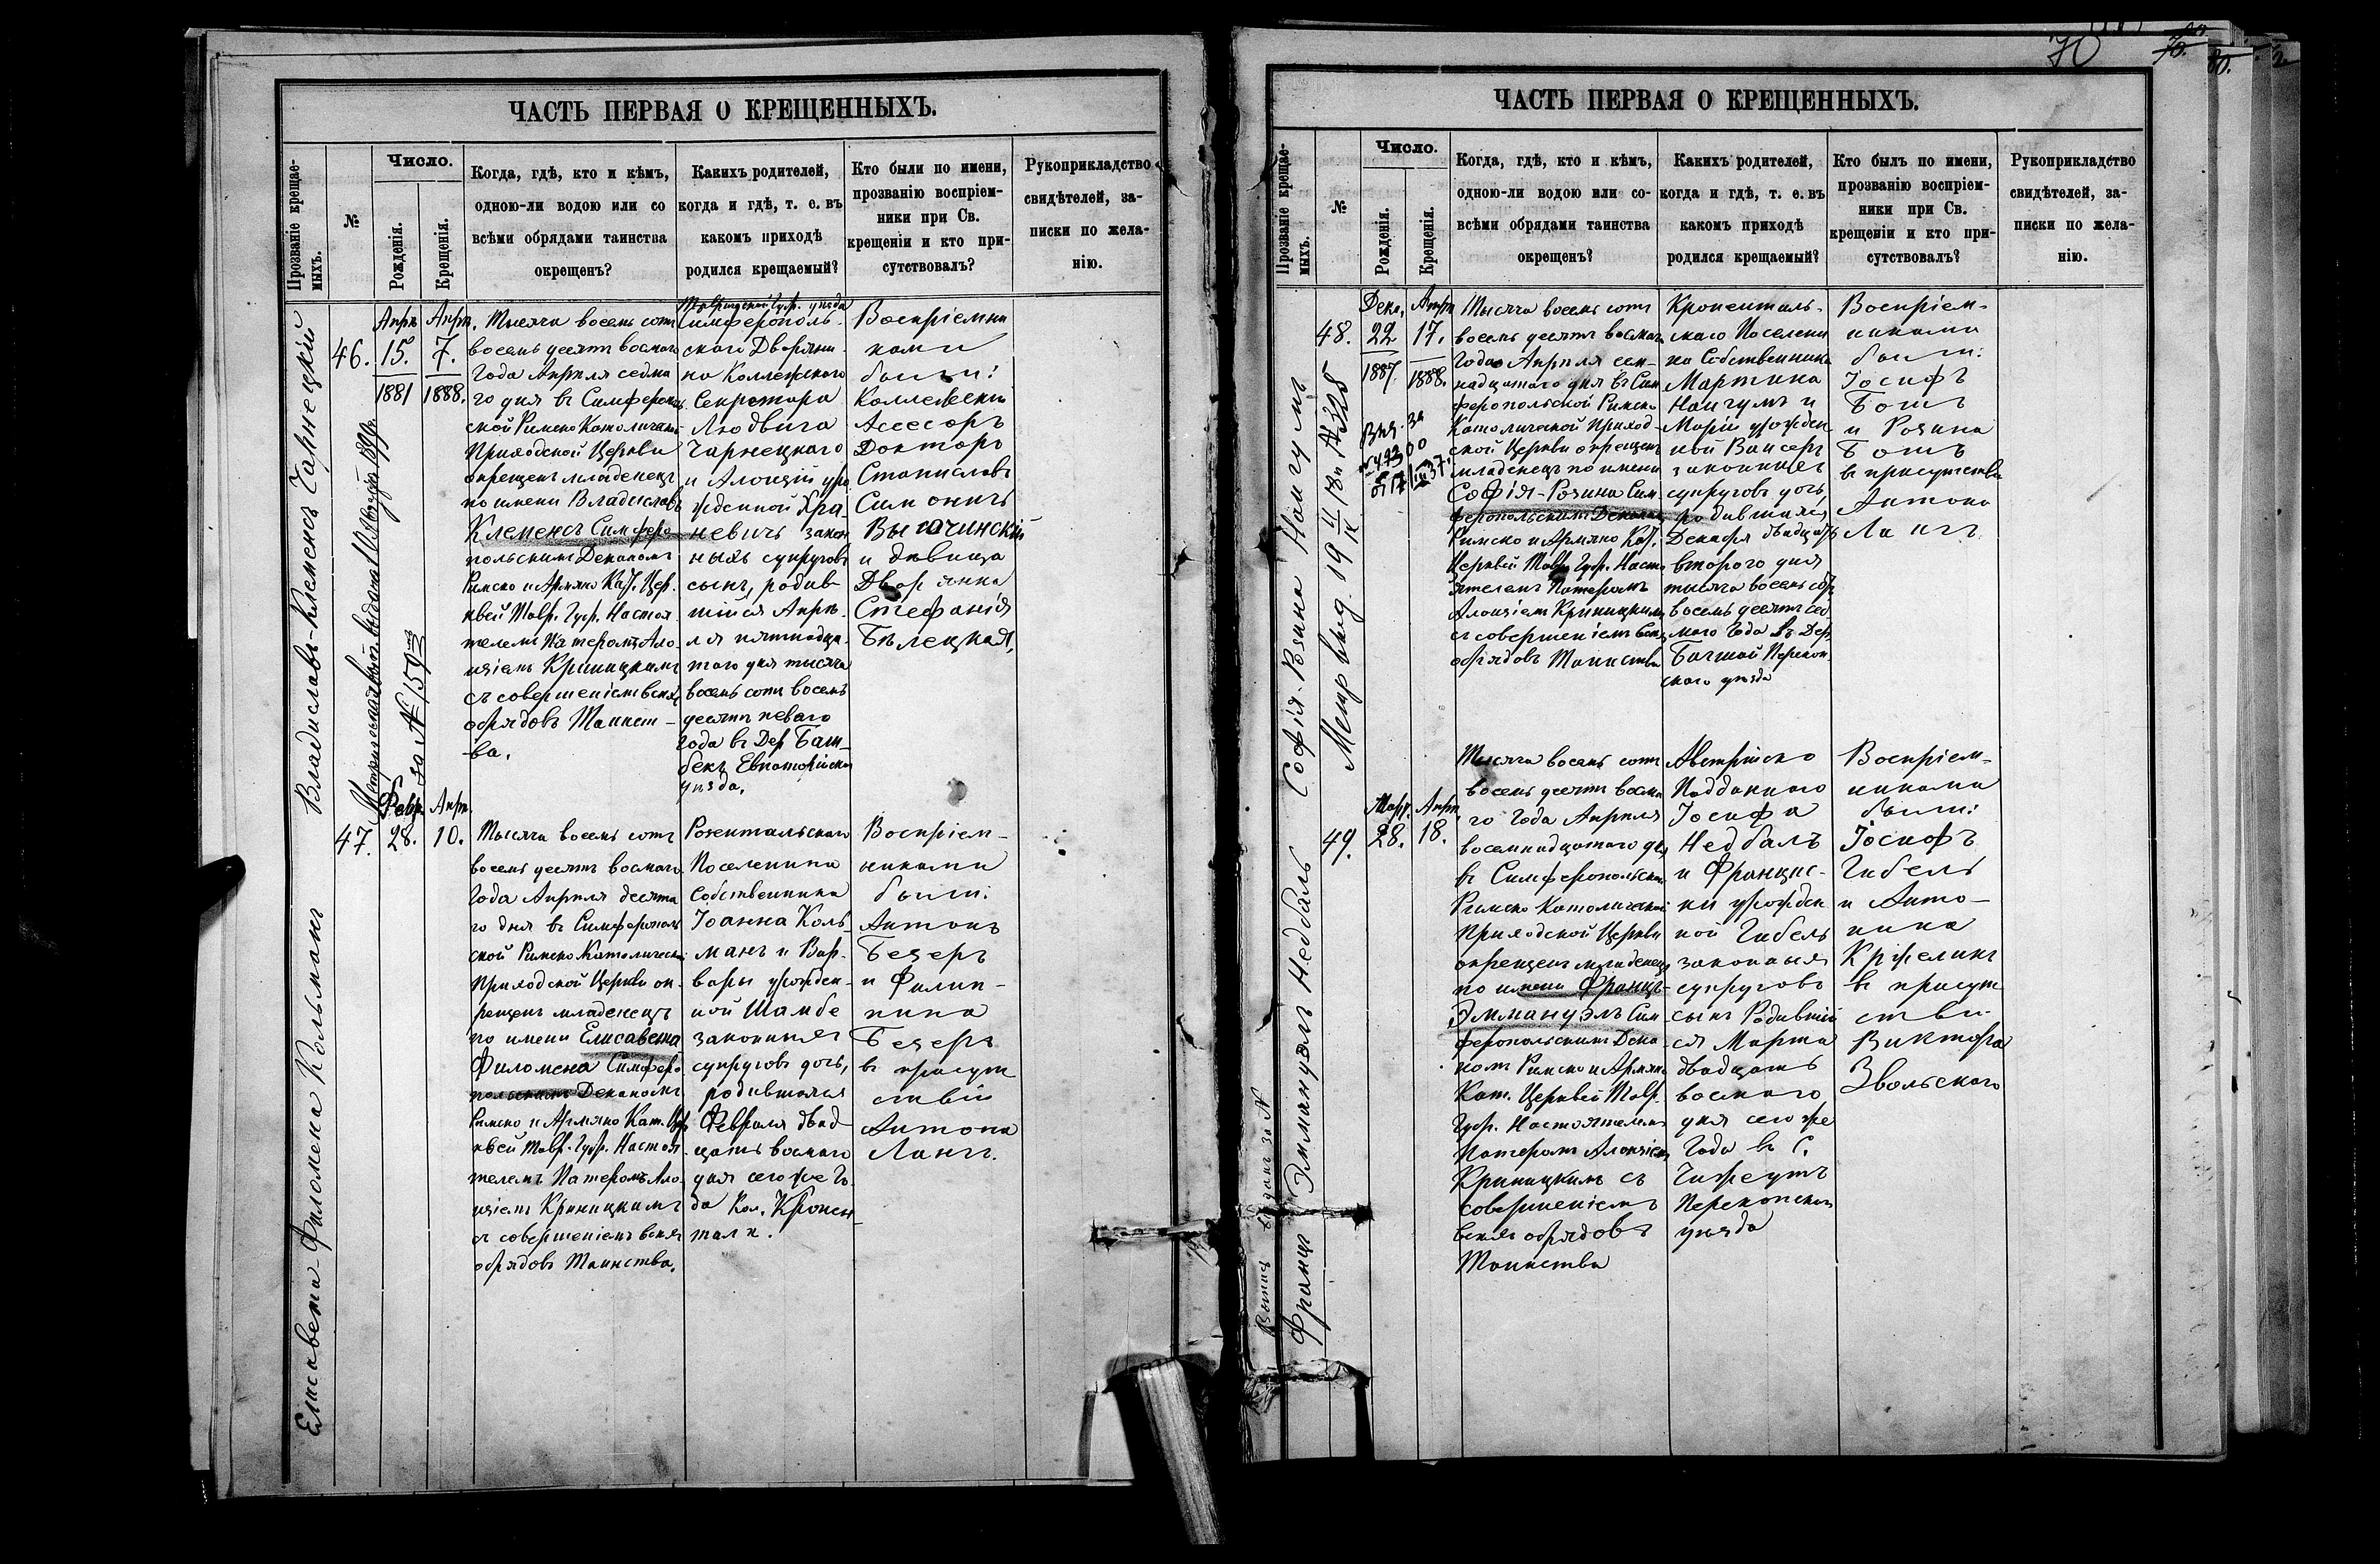 ЧАСТЬ ПЕРВАЯ О КРЕЩЕННЫХЪ.
Прозваніе крещае-
мыхъ.
№
Число.
Рожденія.
Крещенія.
Когда, гдѣ, кто и кѣмъ,
одною-ли водою или со
всѣми обрядами таинства
окрещенъ?
Какихъ родителей,
когда и гдѣ, т. е. въ
какомъ приходѣ
родился крещаемый?
Кто были по имени,
прозванію воспріем-
ники при Св.
крещеніи и кто при-
сутствовалъ?
Рукоприкладство
свидѣтелей, за-
писки по жела-
нію.
Владиславъ-Клеменсъ Чарнецкій
за № 159
46.
Апрѣ
15.
1881
Апрѣ.
7.
1888.
Тысяча восемь сотъ
восемьдесятъ восмаго
Года Апрѣля седма
го дня въ Симферополь
ской Римско Католической
Приходской Церкви
окрещенъ младенецъ
по имени Владиславъ
Клеменсъ Симферо
польскимъ Деканомъ
Римско и Армяно Каѳ. Цер.
квей Тавр. Губ. Настоя
телемъ Патеромъ Ало
изіемъ Криницкимъ
съ совершеніемъ всѣхъ
обрядовъ Таинст-
ва.
Таврической Губ. уѣзда
Симферополь-
скаго Дворяни
на Коллежскаго
Секретара
Людвига
Чарнецкаго
и Алоизіи уро
жденной Хра-
невичъ закон
ныхъ супруговъ
сынъ, родив
шійся Апрѣ-
ля пятнадца-
таго дня тысяча
восемь сотъ восемь
десятъ перваго
Года въ Дер Баш-
бекъ Евпаторійскаго
уѣзда.
Воспріемни
ками
были:
Коллежскій
Асессоръ
Докторъ
Станиславъ
Симонинъ
и дѣвица
Дворянка
Стефанія
Бѣлецкая,
Елисавета-Филомена Кольманъ
47.
Февр.
28.
Апрѣ.
10.
Тысяча восемь сотъ
восемь десятъ восмаго
Года Апрѣля десята
го дня въ Симферополь
ской Римско Католической
Приходской Церкви ок-
рещенъ младенецъ
по имени Елисавета
Филомена Симферо
польскимъ Деканомъ
Римско и Армяно Каѳ. Цер
квей Тавр. Губ. Настоя
телемъ Патеромъ Ало
изіемъ Криницкимъ
съ совершеніемъ всѣхъ
обрядовъ Таинства.
Розентальскаго
Поселянина
Собственника
Іоанна Коль-
манъ и Вар-
вары урожден-
ной Шамбе
законныхъ
супруговъ дочь,
родившаяся
Февраля двад
цать восмаго
дня сего же Го
да Кол. Кронен-
таль.
Воспріем-
никами
были:
Антонъ
Бецеръ
и Филип-
пина
Бецеръ
въ присут
ствіи
Антона
Лангъ.
70
ЧАСТЬ ПЕРВАЯ О КРЕЩЕННЫХЪ.
Прозваніе крещае-
мыхъ.
№
Число.
Рожденія.
Крещенія.
Когда, гдѣ, кто и кѣмъ,
одною-ли водою или со-
всѣми обрядами таинства
окрещенъ?
Какихъ родителей,
когда и гдѣ, т. е. въ
какомъ приходѣ
родился крещаемый?
Кто былъ по имени,
прозванію воспріем-
ники при Св.
крещеніи и кто при-
сутствовалъ?
Рукоприкладство
свидѣтелей, за-
писки по жела-
нію.
Софія-Розина Нангумъ
48.
Дека,
22
1887.
Апрѣ
17.
1888.
Тысяча восемь сотъ
восемь десятъ восмаго
Года Апрѣля сем-
надцатаго дня въ Сим
феропольской Римско
Католической Приход-
ской Церкви окрещенъ
младенецъ по имени
Софія-Розина Сим-
феропольскимъ Деканомъ
Римско и Армяно Каѳ.
Церквей Тавр. Губ. Насто
ятелемъ Патеромъ
Алоизіемъ Криницкимъ
съ совершеніемъ всѣхъ
обрядовъ Таинства
Кроненталь-
скаго Поселяни
на Собственника
Мартина
Нангумъ и
Маріи урожден
ной Вансеръ
законныхъ
супруговъ дочь,
родившаяся
Декабря двадцать
втораго дня
тысяча восемь сотъ
восемь десятъ сед
маго Года въ Дер.
Бачтай Перекоп-
скаго уѣзда
Воспріем-
никами
были:
Іосифъ
Ботъ
и Розина
Ботъ
въ присутствіи
Антона
Лангъ
Францъ Эммануэлъ Недбалъ
49.
Март.
28.
Апрѣ.
18.
Тысяча восемь сотъ
восемь десятъ восма
го Года Апрѣля
восемнадцатаго дня
въ Симферопольской
Римско Католической
Приходской Церкви
окрещенъ младенецъ
по имени Францъ-
Эммануэлъ Сим-
феропольскимъ Дека-
номъ Римско и Армяно
Каѳ. Церквей Тавр.
Губ. Настоятелемъ
Патеромъ Алоизіемъ
Криницкимъ съ
совершеніемъ
всѣхъ обрядовъ
Таинства
Австрійско
Подданнаго
Іосифа
Недбалъ
и Францис-
ки урожден
ной Гибель
законныхъ
супруговъ
сынъ Родившій
ся Марта
двадцать
восмаго
дня сего же
Года въ С.
Перекопскаго
уѣзда
Воспріем-
никами
были:
Іосифъ
Гибель
и Анто-
нина
въ присут
ствіи
Виктора
Звольскаго